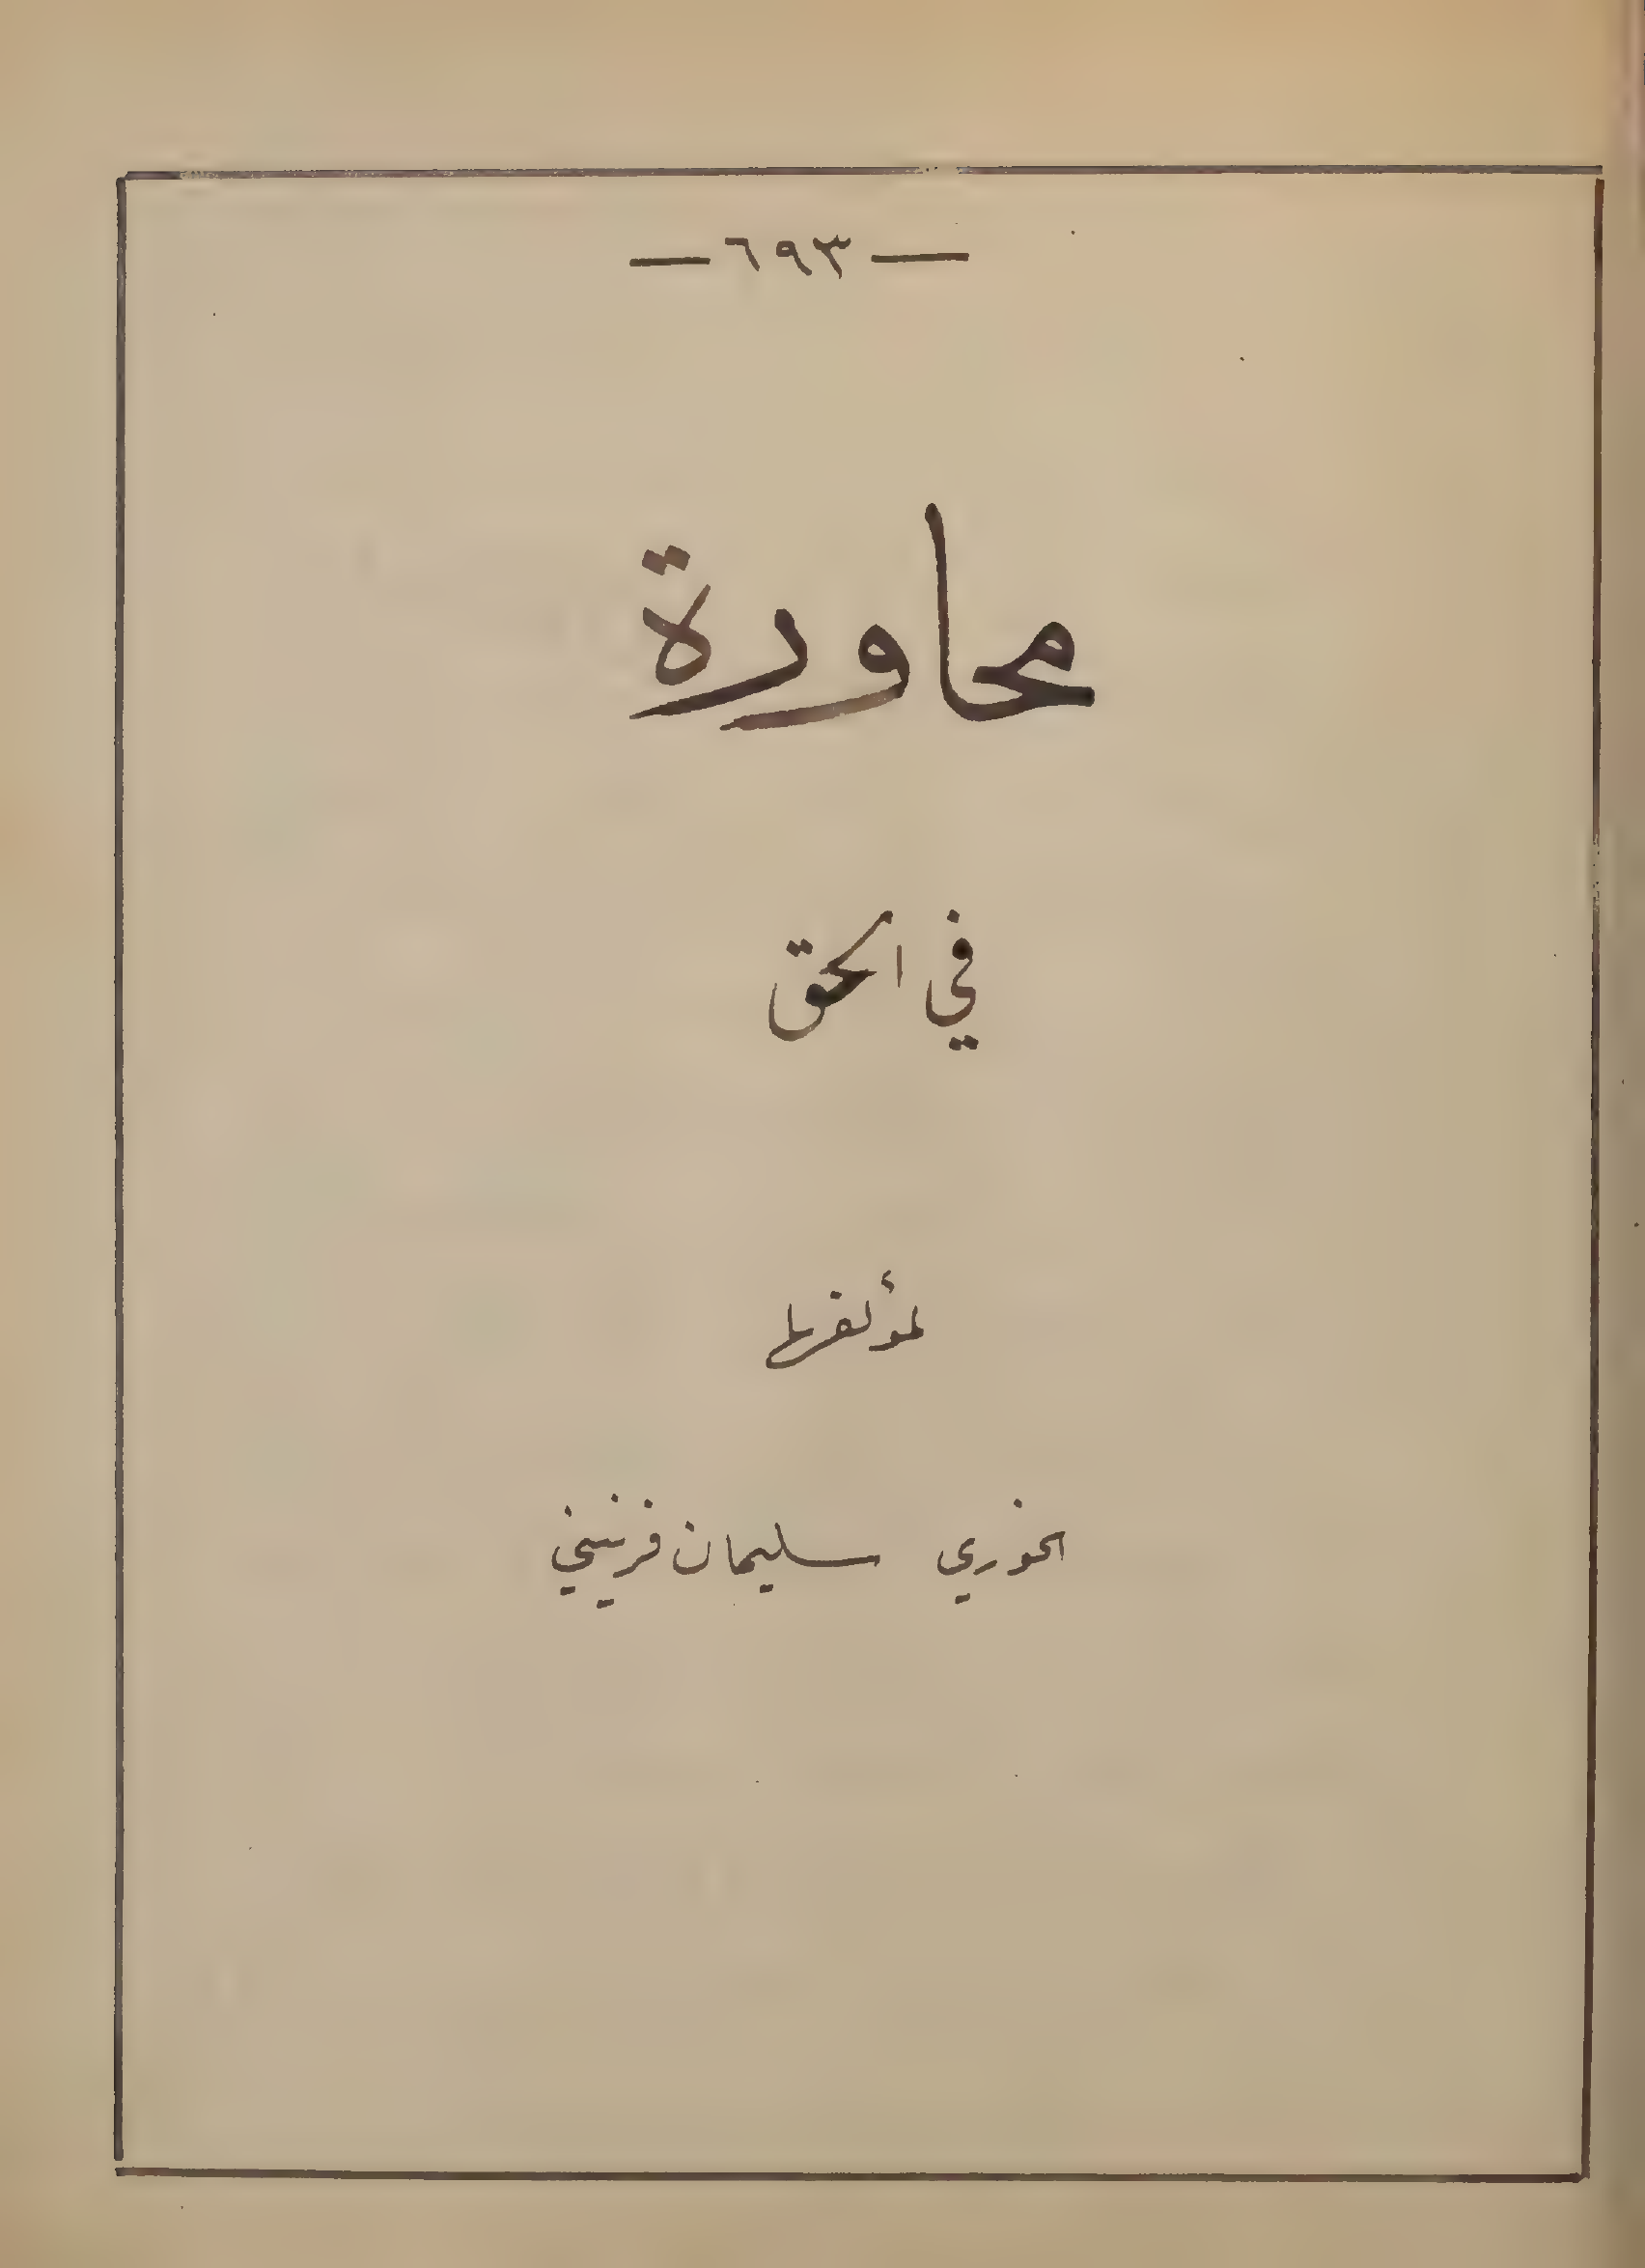 — ٦٩٣ —
محاورة
في الحق
لمؤلفها
الخوري سليمان